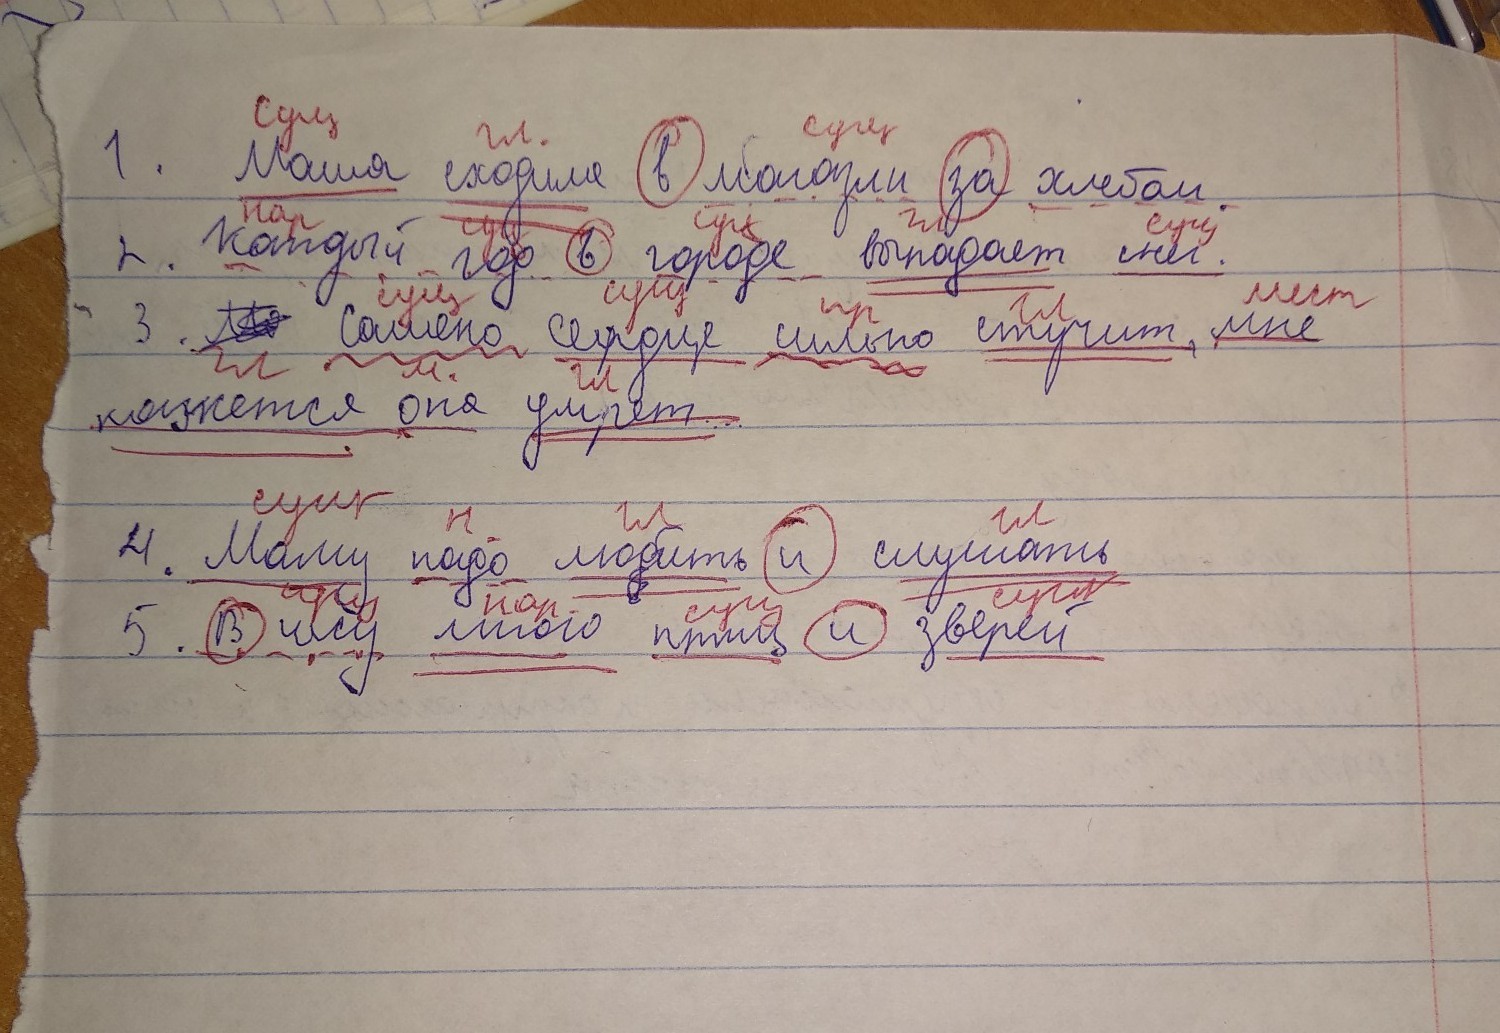 сущ гл. сущ
1. Маша сходила в магазин за хлебом.
нар сущ сущ гл сущ
2. Каждый год в городе выпадает снег.
сущ сущ пр гл мест
3. Самено сердце сильно стучит, мне
гл м. гл
кажется она умрет...
сущ н гл гл
4. Маму надо любить и слушать
сущ нар. сущ сущ
5. В лесу много птиц и зверей